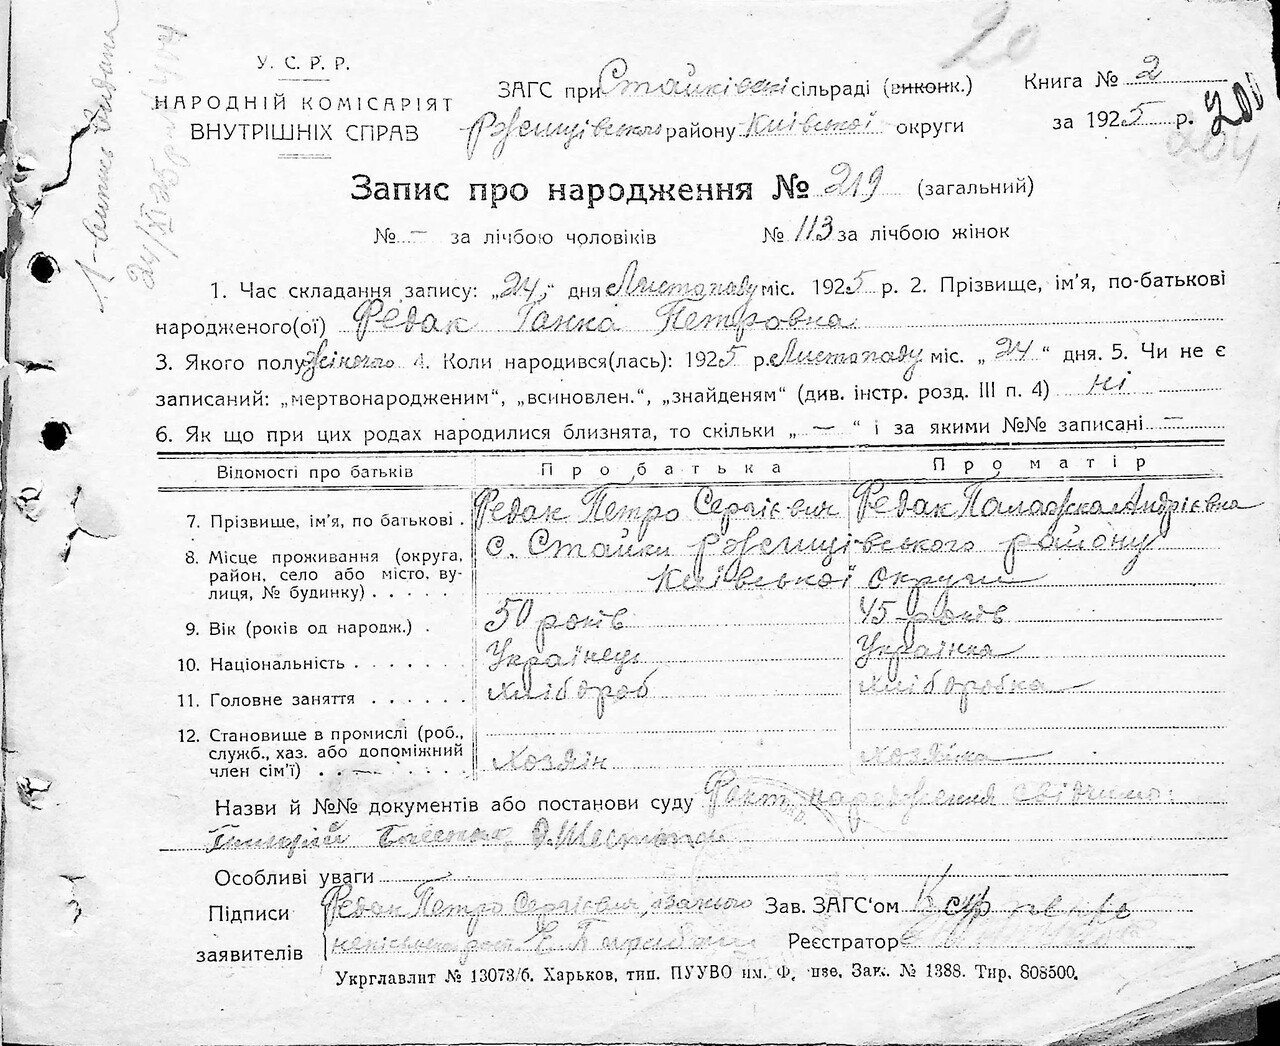 20
У. С. Р. Р.
НАРОДНІЙ КОМІСАРІЯТ
ВНУТРІШНІХ СПРАВ
ЗАГС при Стайківскі сільраді (виконк.)
Ржищівського району Київської округи
Книга № 2
за 1925 р.
204
1-Витяг видана
24/XI 25р.
Запис про народження № 219 (загальний)
№ – за лічбою чоловіків № 113 за лічбою жінок
1. Час складання запису: „24“ дня Листопаду міс. 1925 р. 2. Прізвище, ім'я, по-батькові
народженого(ої) Редак Ганка Петровна
3. Якого полу жіночо 4. Коли народився(лась): 1925 р. Листопаду міс. „ 24 “ дня. 5. Чи не є
записаний: „мертвонародженим“, „всиновлен.“, „знайденям“ (див. інстр. розд. III п. 4) ні
6. Як що при цих родах народилися близнята, то скільки „ — “ і за якими №№ записані –
Відомості про батьків Про батька Про матір
7. Прізвище, ім'я, по батькові . Редак Петро Сергієвич Редак Палажка Андрієвна
8. Місце проживання (округа, с. Стайки Ржищівського району
район, село або місто, ву- Київської округи
лиця, № будинку) . . . . .
9. Вік (років од народж.) . 50 років 45 років
10. Національність . . . . . . Українець Українка
11. Головне заняття . . . . . . Хлібороб Хліборобка
12. Становище в промислі (роб.,
служб., хаз. або допоміжний
член сім'ї) . . . . . . . Хозяін Хозяіка
Назви й №№ документів або постанови суду Факт народження свідчимо:
Особливі уваги
Підписи Редак Петро Сергієвич, Зав. ЗАГС'ом
заявителів Реєстратор
Укрглавліт № 13073/б. Харьков, тип. ПУУВО им. Ф. Зак. № 1388. Тир. 808500.